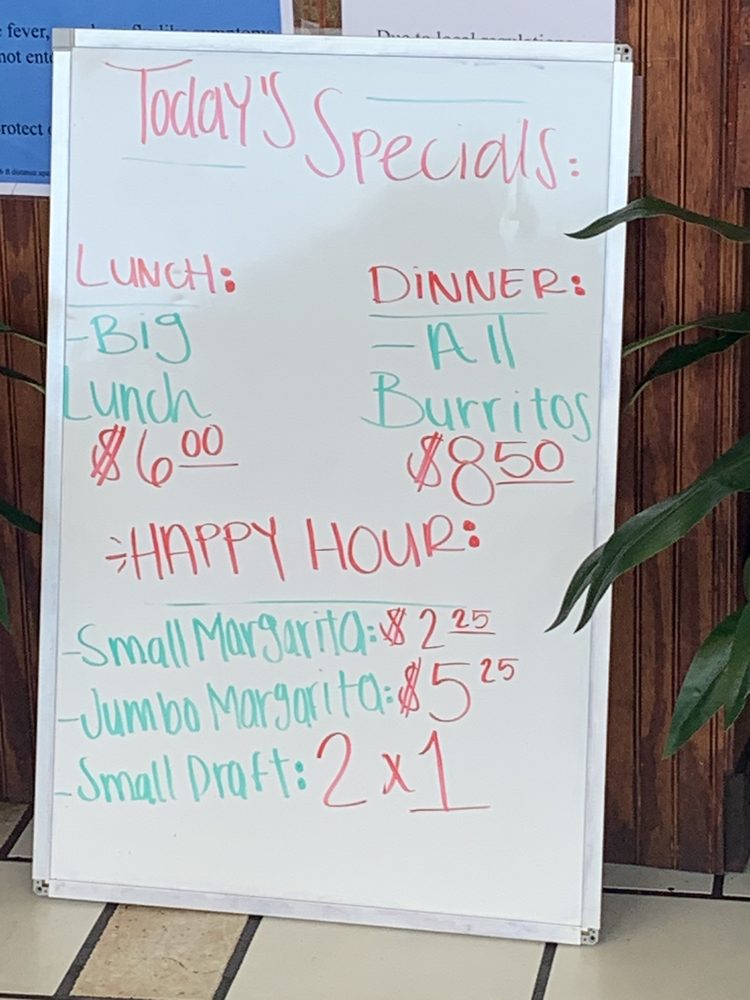 fever,
not
rotect
Due to local regulations
Today's Specials:
LUNCH:
-Big
Lunch
$6.00
DINNER:
-All
Burritos
$8.50
HAPPY HOUR:
-Small Margarita: $2.25
-Jumbo Margarita: $5.25
-Small Draft: 2x1